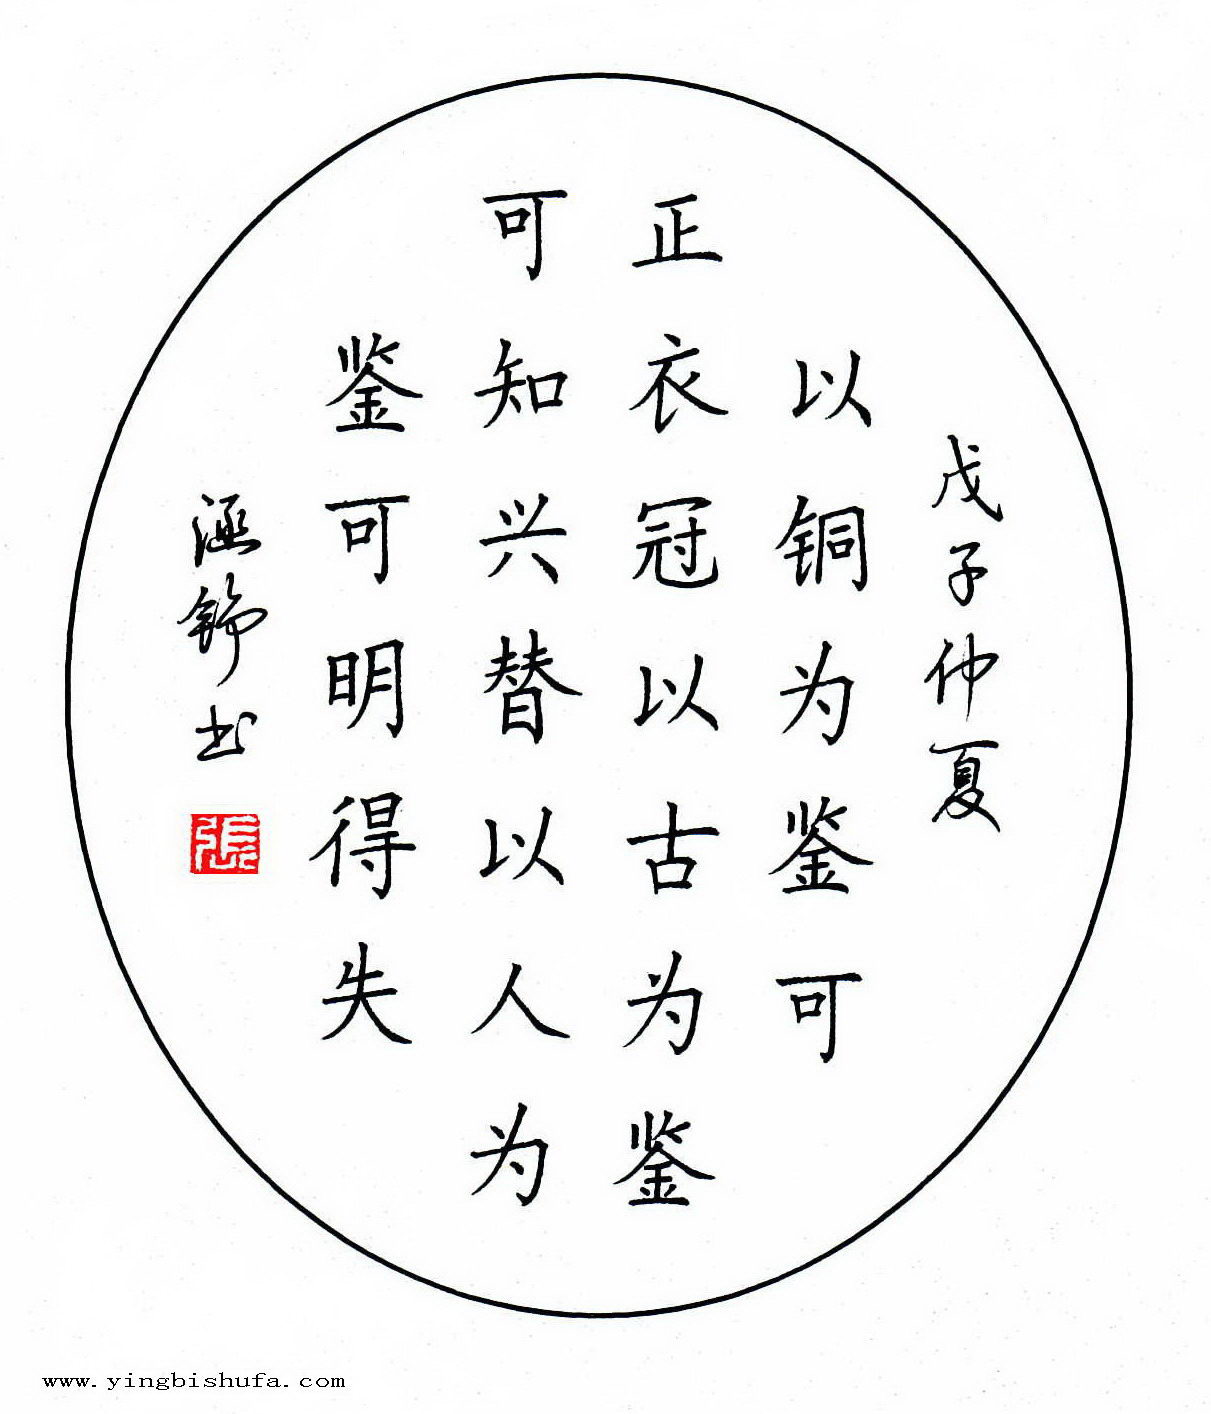 戊子仲夏
以铜为鉴可
正衣冠以古为鉴
可知兴替以人为
鉴可明得失
涵铮书
張
www.yingbishufa.com